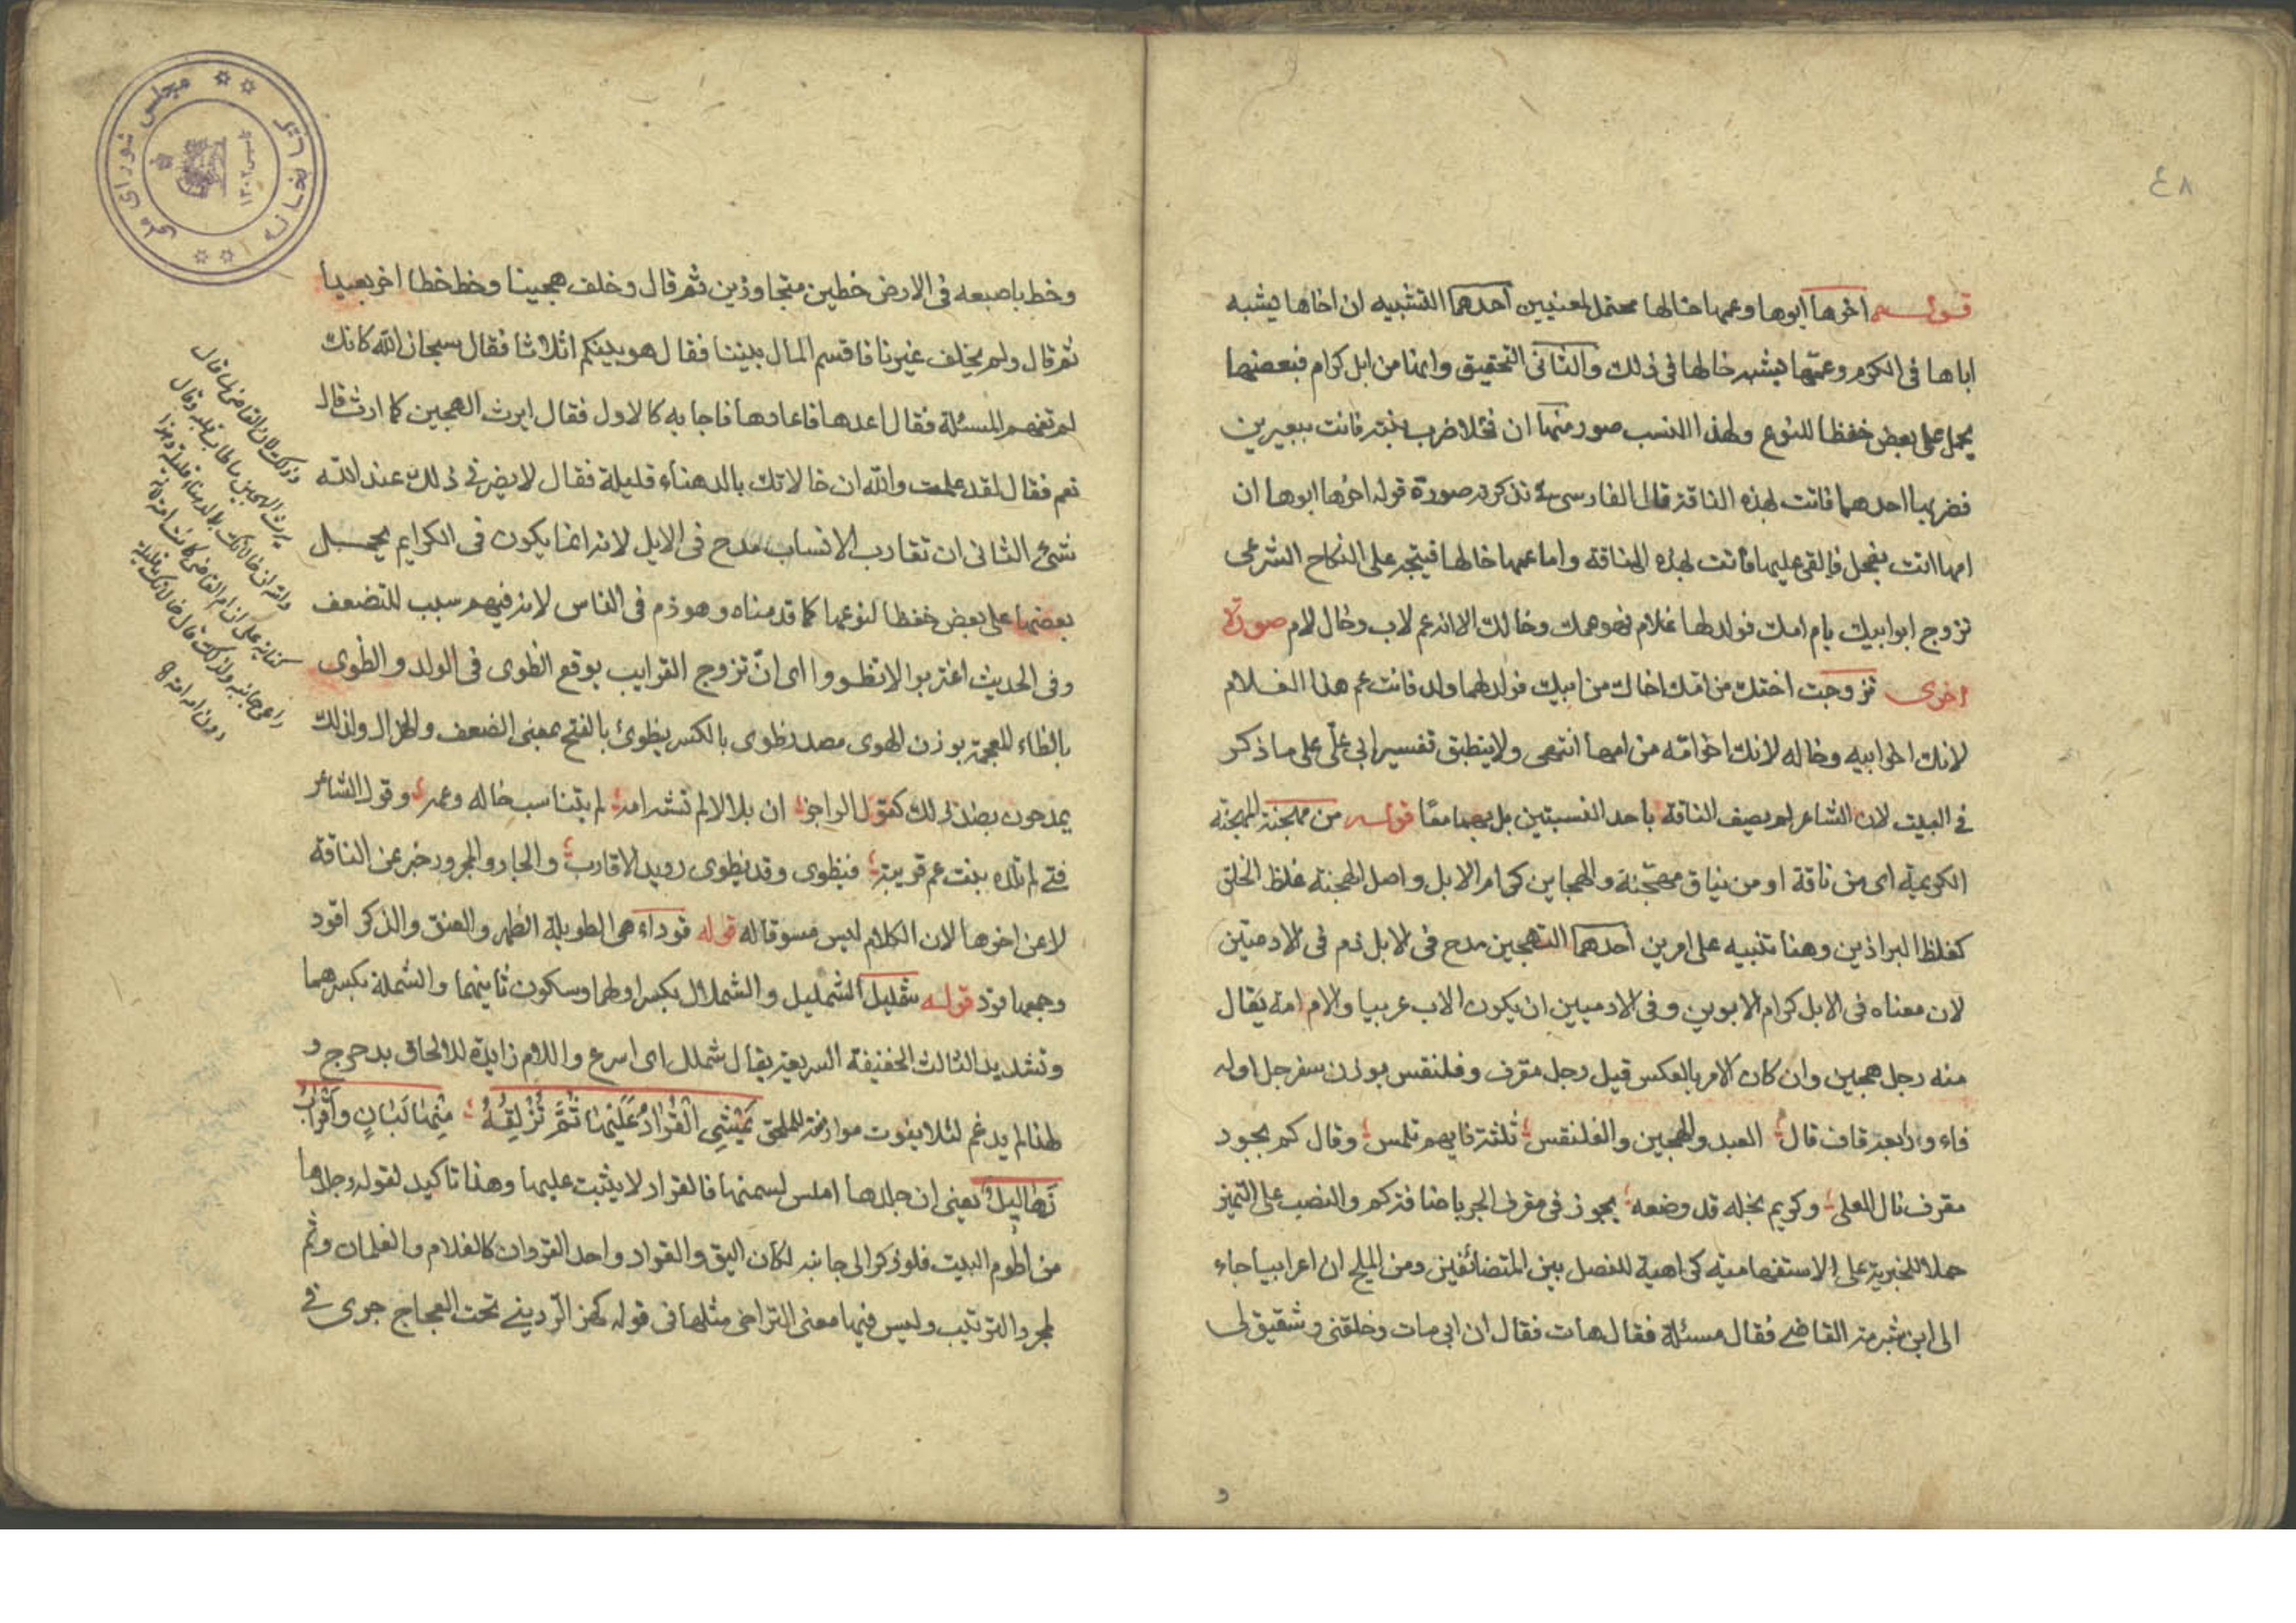 ٤٨
قوله اخوها ابوها وعمها خالها محتمل لمعنيين احدهما التشبيه ان اخاها يشبه
اباها فى الكرم وعمها يشبه خالها فى ذلك والثانى التحقيق وانها من ابل كرام فبعضها
يحمل على بعض حفظا للنوع ولهذا النسب صور منها ان فحلا ضرب بنته فاتت ببعيرين
فضربها احدهما فاتت بهذه الناقة قال الفارسى فى تذكرته صورة قوله اخوها ابوها ان
امها اتت بفحل فالقى عليها فاتت بهذه الناقة واما عمها خالها فيتجه على النكاح الشرعى
تزوج ابو ابيك بام امك فولد لها غلام فهو عمك وخالك الا انه عم لاب وخال لام صورة
اخرى تزوجت اختك من امك اخاك من ابيك فولد لهما ولد فانت عم هذا الغلام
لانك اخو ابيه وخاله لانك اخو امه من امها انتهى ولا ينطبق تفسير ابى على على ما ذكر
فى البيت لان الشاعر لم يصف الناقة باحد النسبتين بل بهما معا قوله من مهجنة المهجنة
الكريمة اى من ناقة او من نياق مهجنة والهجاين كرام الابل واصل الهجنة غلظ الخلق
كغلظ البراذين وهنا تنبيه على امرين احدهما التهجين مدح فى الابل ذم فى الادميين
لان معناه فى الابل كرام الابوين وفى الادميين ان يكون الاب عربيا والام امة يقال
منه رجل هجين وان كان الامر بالعكس قيل رجل مقرف وفلنقس بوزن سفرجل اوله
فاء ورابعه قاف قال العبد والهجين والفلنقس ثلثة فايهم تلمس وقال كم بجود
مقرف نال العلى وكريم بخله قد وضعه يجوز فى مقرف الجر باضافة كم والنصب على التميز
حملا للخبرية على الاستفهامية كراهية للفصل بين المتضائفين ومن المليح ان اعرابيا جاء
الى ابن شبرمة القاضى فقال مسئلة فقال هات فقال ان ابى مات وخلفنى وشقيق لى
و
وخط باصبعه فى الارض خطين متجاوزين ثم قال وخلف هجينا وخط خطا اخر بعيدا
ثم قال ولم يخلف غيرنا فاقسم المال بيننا فقال هو بينكم اثلاثا فقال سبحان الله كانك
لم تفهم المسئلة فقال اعدها فاعادها فاجابه كالاول فقال ايرث الهجين كما ارث قال
نعم فقال لقد علمت والله ان خالاتك بالدهناء قليلة فقال لا يضرنى ذلك عند الله
شئ الثانى ان تقارب الانساب مدح فى الابل لانه انما يكون فى الكرايم يحمل
بعضها على بعض حفظا لنوعها كما قدمناه وهو ذم فى الناس لانه فيهم سبب للتضعف
وفى الحديث اغتربوا لا تظووا اى ان تزوج القرايب يوقع الظوى فى الولد والظوى
بالظاء المعجمة بوزن الهوى مصدر ظوى بالكسر يظوى بالفتح بمعنى الضعف والهزال ولذلك
يمدحون بضد ذلك كقول الراجز ان بلالا لم تشنه امه لم يتناسب خاله وعمه وقول الشاعر
فتى لم تلده بنت عم قريبة فيظوى وقد يظوى رويد الاقارب والجار والمجرور خبر عن الناقة
لا عن اخوها لان الكلام ليس مسوقا له قوله قوداء هى الطويلة الظهر والعنق والذكر اقود
وجمعها قود قوله شمليل الشمليل والشملال بكسر اولهما وسكون ثانيهما والشملة بكسرهما
وتشديد الثالث الخفيفة السريعة يقال شملل اى اسرع واللام زايدة للالحاق بدحرج و
لهذا لم يدغم لئلا يفوت موازنة للملحق يَمْشِى الْقُرَادُ عَلَيْهَا ثُمَّ تُزْلِقُهُ مِنْهَا لَبَانٍ وَاَقْرَابٌ
زَهَالِيلُ يعنى ان جلدها املس لسمنها فالقراد لا يثبت عليها وهذا تاكيد لقوله وجلدها
من اطوم البيت فلو ذكر الى جانبه لكان اليق والقراد واحد القردان كالغلام والغلمان وثم
لمجرد الترتيب وليس فيها معنى التراخى مثلها فى قوله كهز الردينى تحت العجاج جرى فى
وذلك لان القاضى لما قال
يرث الهجين ما طاب قلبه وقال
والله ان خالاتك بالدهناء قليلة وهذا
كناية على ان ام القاضى كانت امة لانه
راعى جانبه ولذلك قال خالاتك قليلة
كتابخانه مجلس شوراى ملى
تاسيس ١٣٠٢